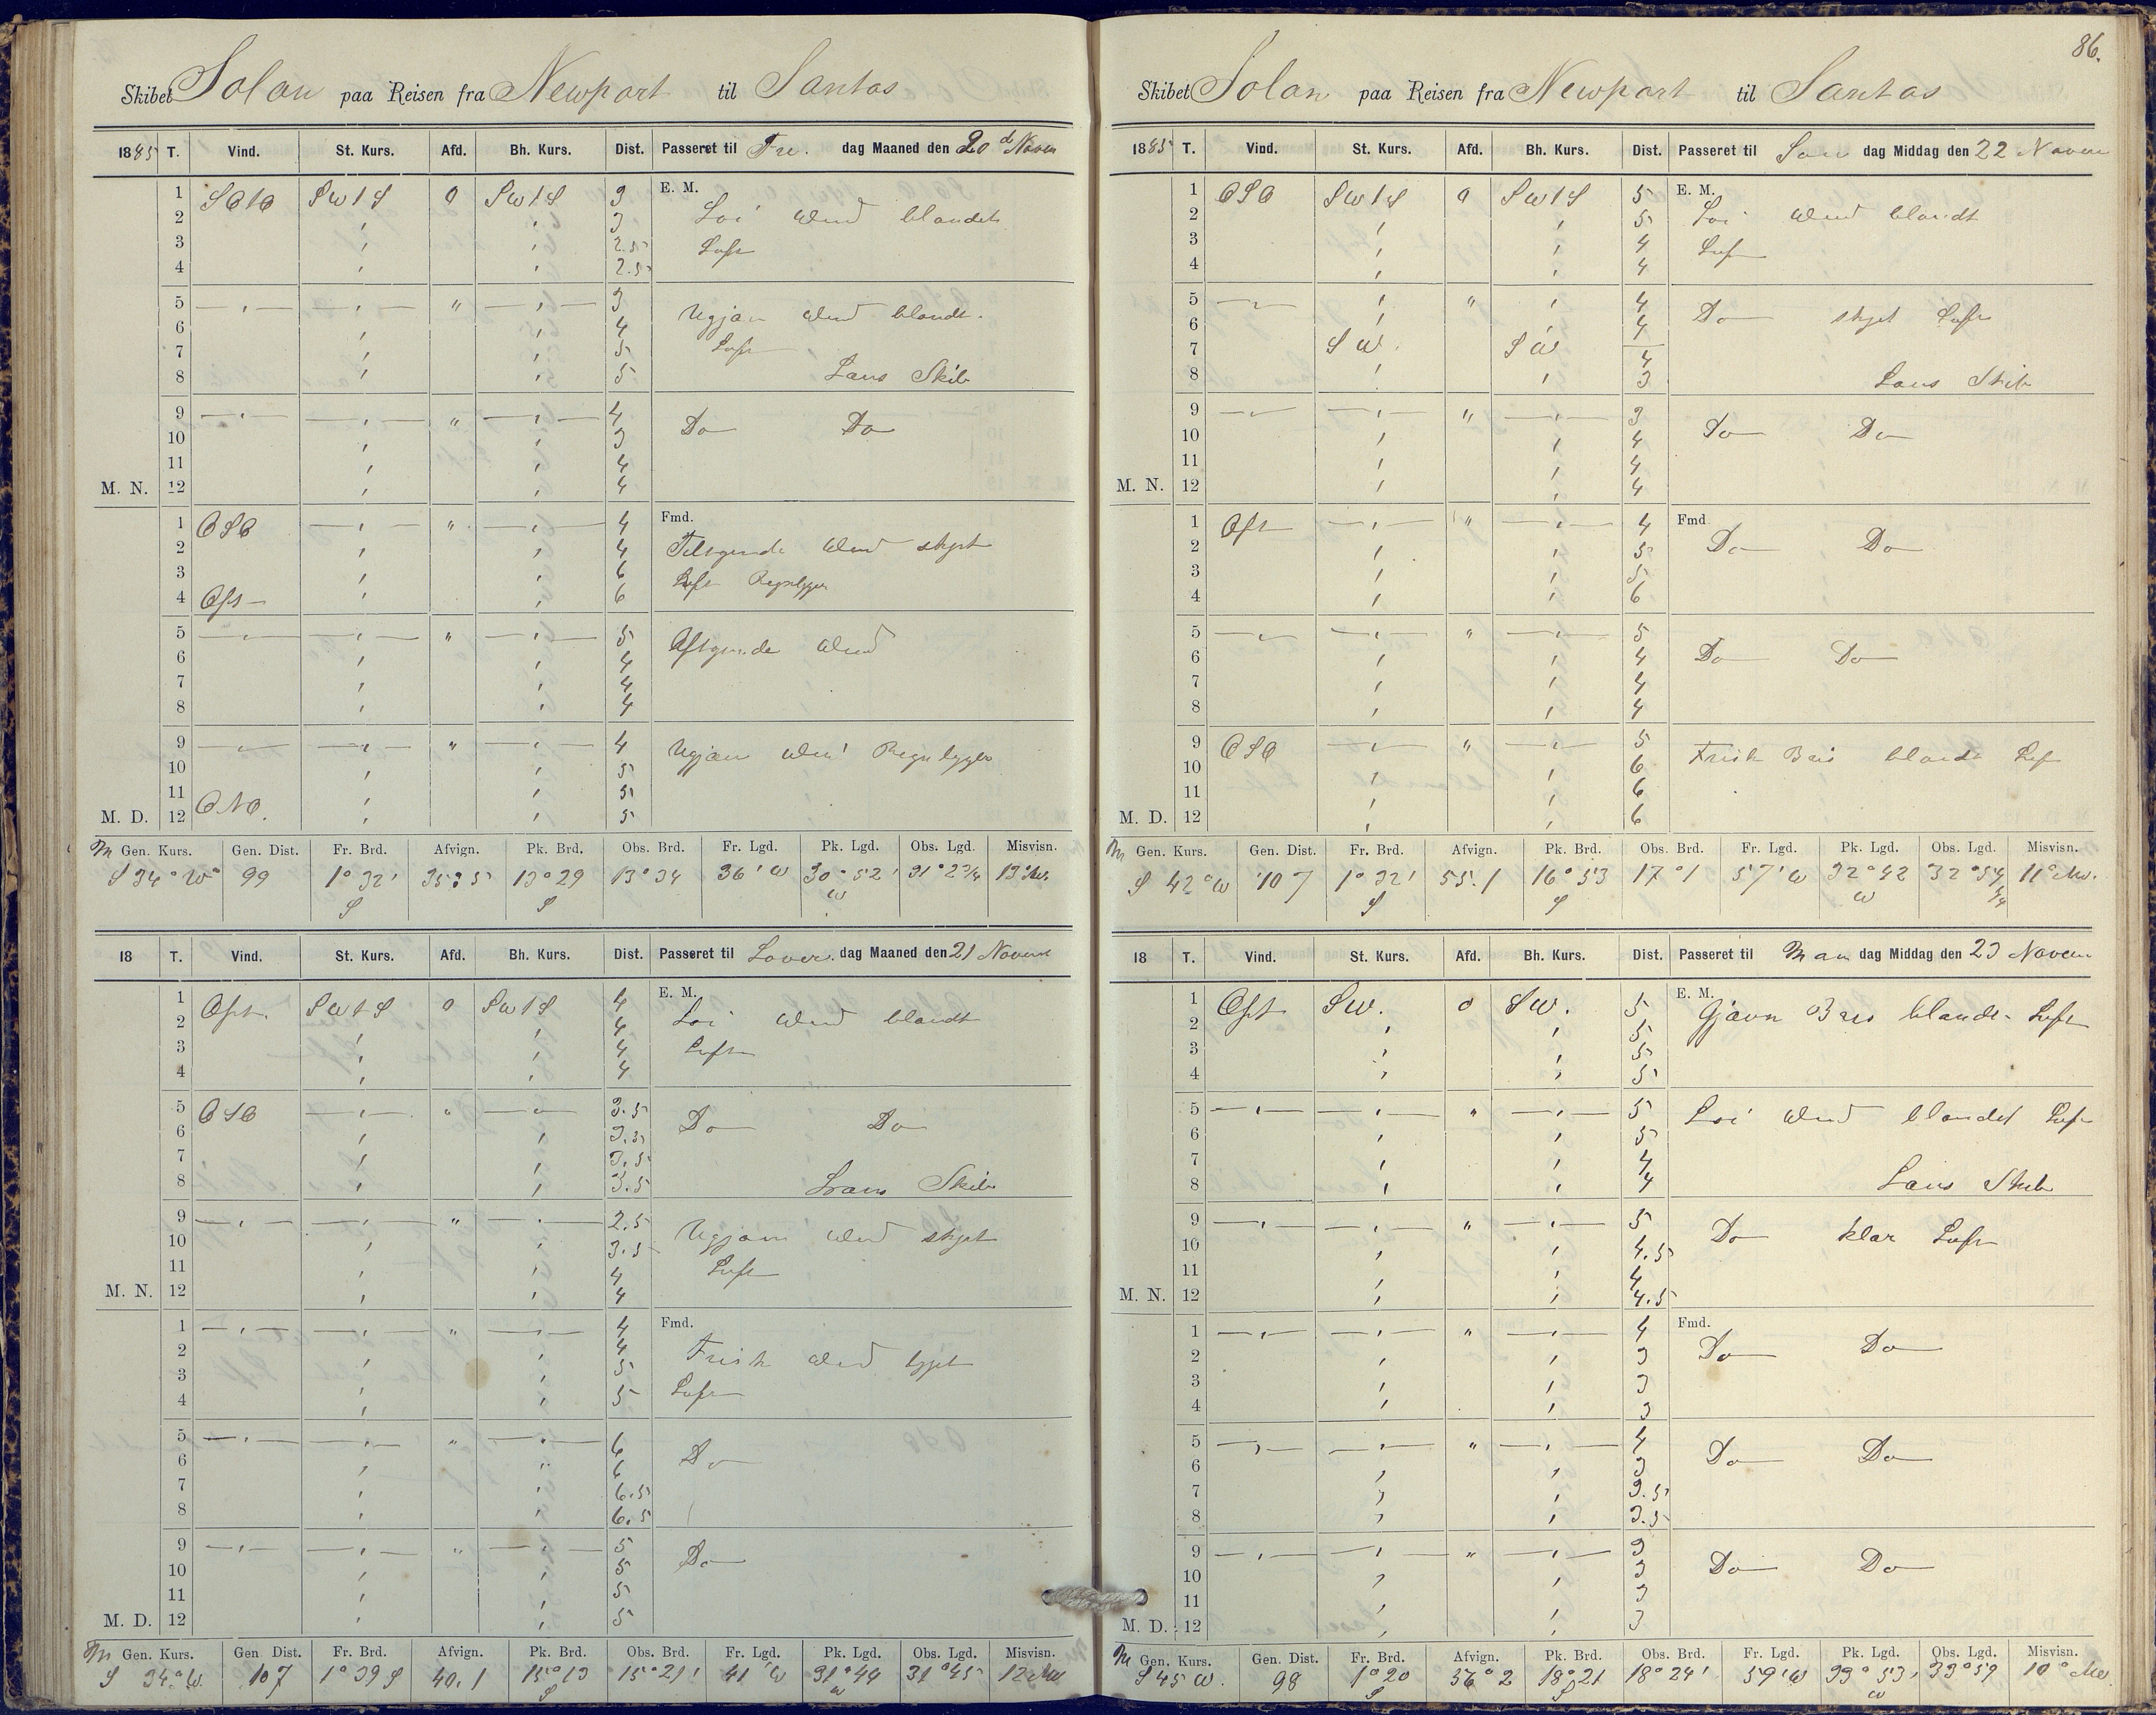 86.
Skibet Solon paa Reisen fra Newport til Santos
1885 T. Vind. St. Kurs. Afd. Bh. Kurs. Dist. Passeret til Fre. dag Maaned den 20d Novem
1 SOtO SWtS 0 SWtS 3 E. M.
2 3 Loi Vind blandet
3 2.5 Luft
4 2.5
5 3 Ugjævn Vind blandt.
6 4 Luft
7 5
8 5 Lens Skib
9 4 Do Do
10 3
11 4
M. N. 12 4
1 OSO 4 Fmd.
2 4 Tiltagende Vind skyet
3 6 Luft Regnbyger
4 Ost 6
5 5 Aftagende Vind
6 4
7 4
8 4
9 4 Ugjævn Vind Regnbyger
10 5
11 5
M. D. 12 ONO. 5
M Gen. Kurs. Gen. Dist. Fr. Brd. Afvign. Pk. Brd. Obs. Brd. Fr. Lgd. Pk. Lgd. Obs. Lgd. Misvisn.
S 34° W 99 1° 32' S 13° 29 S 13° 34 36' W 30° 52' W 31° 2 3/4
18 T. Vind. St. Kurs. Afd. Bh. Kurs. Dist. Passeret til Löver. dag Maaned den 21 Novem
1 Ost. SWtS 0 SWtS 4 E. M.
2 4 Loi Vind blandt
3 4 Luft
4 4
5 OSO 3.5 Do Do
6 3.5
7 3.5
8 3.5 Lens Skib
9 2.5 Ugjævn Vind skyet
10 3.5 Luft
11 4
M. N. 12 4
1 4 Fmd.
2 4 Frisk Vind bygel
3 5 Luft
4 5
5 6 Do
6 6
7 6.5
8 6.5
9 5 Do
10 5
11 5
M. D. 12 5
M Gen. Kurs. Gen. Dist. Fr. Brd. Afvign. Pk. Brd. Obs. Brd. Fr. Lgd. Pk. Lgd. Obs. Lgd. Misvisn.
S 34° W. 107 1° 39 S 40.1 15° 13 S 15° 21' 41' W 31° 44 W 31° 45
Skibet Solon paa Reisen fra Newport til Santos
1885 T. Vind. St. Kurs. Afd. Bh. Kurs. Dist. Passeret til Søn dag Middag den 22 Novem
1 OSO SWtS 0 SWtS 5 E. M.
2 5 Loi Vind blandt
3 4 Luft
4 4
5 4 Do skyet Luft
6 4
7 SW. SW 4
8 3 Lens Skib
9 3 Do Do
10 4
11 4
M. N. 12 4
1 Ost 4 Fmd
2 5 Do Do
3 5
4 6
5 5
6 4 Do Do
7 4
8 4
9 OSO 5 Frisk Bris blandt Luft
10 6
11 6
M. D. 12 6
M Gen. Kurs. Gen. Dist. Fr. Brd. Afvign. Pk. Brd. Obs. Brd. Fr. Lgd. Pk. Lgd. Obs. Lgd. Misvisn.
S 42° W 107 1° 32' S 16° 53 S 17° 1 57' W 32° 42 W 32° 54
18 T. Vind. St. Kurs. Afd. Bh. Kurs. Dist. Passeret til Man dag Middag den 23 Novem
1 Ost SW. 0 SW. 5 E. M. Gjævn Bris blandt Luft
2 5
3 5
4 5
5 5 Loi Vind blandet Luft
6 5
7 4
8 4 Lens Skib
9 5 Do klar Luft
10 4.5
11 4
M. N. 12 4.5
1 4 Fmd.
2 3 Do Do
3 3
4 3
5 4 Do Do
6 3
7 3.5
8 3.5
9 3 Do Do
10 3
11 3
M. D. 12 3
M Gen. Kurs. Gen. Dist Fr. Brd. Afvign. Pk. Brd. Obs. Brd. Fr. Lgd. Pk. Lgd. Obs. Lgd. Misvisn.
S 45 W. 98 1° 20 S 18° 21 S 18° 24' 59' W 33° 53' W 33° 59